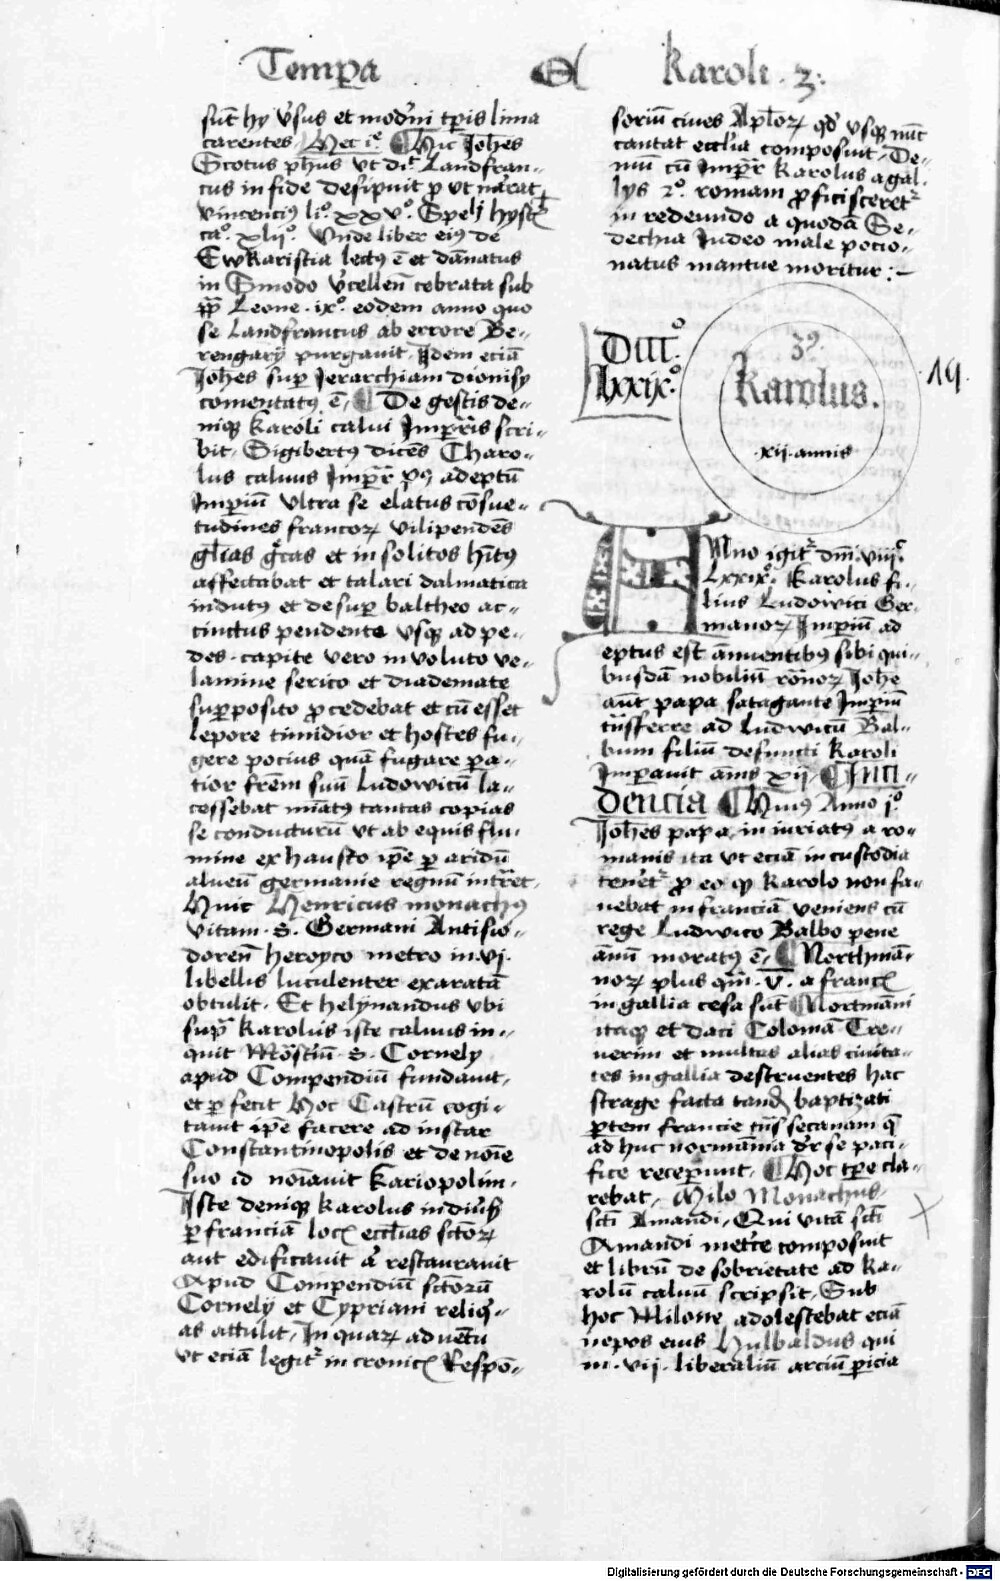 Tempora Karoli · 3 ·
sunt hy v̓sus et mod̓ni tp̄is lima
carentes, Hec iͤ. Hic Joh̄es
Scotus ph̄us vt dic̄ Landfran-
cus in fide desipuit ꝓ vt narrat
vincenciꝰ li.º xxvº. Spec̄ hyst̄
caº. xlijº. Vnde liber eiꝰ de
Ewkaristia lectꝰ ē et dāpnatus
in Sinodo v̓cellen̄ celebrata sub
pp̄ Leone .ixº. eodem anno quo
se Landfrancus ab errore Be-
rengarij purgauit. Idem eciā
Joh̄es sup̲ Jerarchiam dionisy
comentatꝰ ē. De gestis de-
niqꝫ Karoli calui Impr̄is scri-
bit. Sigibertꝰ dicēs Charo-
lus caluus Imp̄r pꝰ adeptū
Imperiū vltra se elatus cōsue-
tudines francoꝝ vilipendēs
gl̄ias gͣcas et insolitos h̄itꝰ
affectabat et talari dalmatica
indutꝰ et desup̲ baltheo ac-
cinctus pendente vsqꝫ ad pe-
des. capite vero inuoluto ve-
lamine serico et diademate
sup̲posito ꝓcedebat et cū esset
lepore timidior et hostes fu-
gere pocius quā fugare ꝑa-
tior fr̄em suū Ludowicū la-
cessebat minatꝰ tantas copias
se conducturū vt ab equis flu-
mine exhausto ip̄e ꝑ aridū
alueū germanie regnū intraret.
Huic Henricus monachꝰ
vitam .S. Germani Antisio-
doren̄ heroyco metro in .vj.
libellis luculenter exaratā
obtulit. Et helynandus vbi
supͣ Karolus iste caluus in-
quit Monasteriū .S. Cornely
apud Compendiū fundauit,
et ꝑfecit Hoc Castrū cogi-
tauit ip̄e facere ad instar
Constantinopolis et de noīe
suo id noīauit Kariopolim.
Iste deniqꝫ Karolus in diūsis
ꝑ franciā locis eccl̄ias sctōꝝ
aut edificauit aut restaurauit
Apud Compendiū sctōrū
Cornely et Cypriani reliqi-
as attulit, In quaꝝ aduētu
vt eciā legitꝭ in cronicis Respō-
soriū ciues Apl̄oꝝ qd̓ vsqꝫ nūc
cantat eccl̄ia composuit. De-
mū cū Imp̄r Karolus a gal-
lys 2º. romam ꝓficisceretꝭ
in redeundo a quodā Se-
dechia Iudeo male pocio-
natus mantue moritur :-
DIIIº.
lxxixº.
3º
Karolus.
.xij. annis
19.
Anno igitꝭ dnī. viijº.
Lxxixº. Karolus fi-
lius Ludowici Ger-
manoꝝ Imperiū ad
eptus est annuentibꝰ sibi qui-
busdā nobiliū romanoꝝ Iohe
aūt papa satagante Imperiū
trāsferre ad Ludwicū Bal-
bum filiū defuncti Karoli
Imperauit annis xij. Inci-
dencia Huius Anno jº
Joh̄es papa, iniuriatꝰ a ro-
manis ita vt eciā in custodia
teneretꝭ ꝓ eo qꝫ Karolo non fa-
uebat in franciā veniens cū
rege Ludwico Balbo pene
annū moratꝰ ē. Northmā-
noꝝ plus qm̄ .v̄. a francis
in gallia cesa sūt Nortmāni
itaqꝫ et daci Coloniā Tre-
uerim et multas alias ciuita-
tes in gallia destruentes hac
strage facta tandē baptizati
ꝑtem francie trās secanam q̄
ad huc normānia dr̄ se paci-
fice receperunt. Hoc tp̄e cla-
rebat. Milo Monachus
sctī Amandi. Qui vitā sctī
Amandi metrice composuit
et librū de sobrietate ad Ka-
rolū caluū scripsit. Sub
hoc Milone adolescebat eciā
nepos eius Hulbaldus qui
in .vij. liberaliū arciū pericia
Digitalisierung gefördert durch die Deutsche Forschungsgemeinschaft - DFG